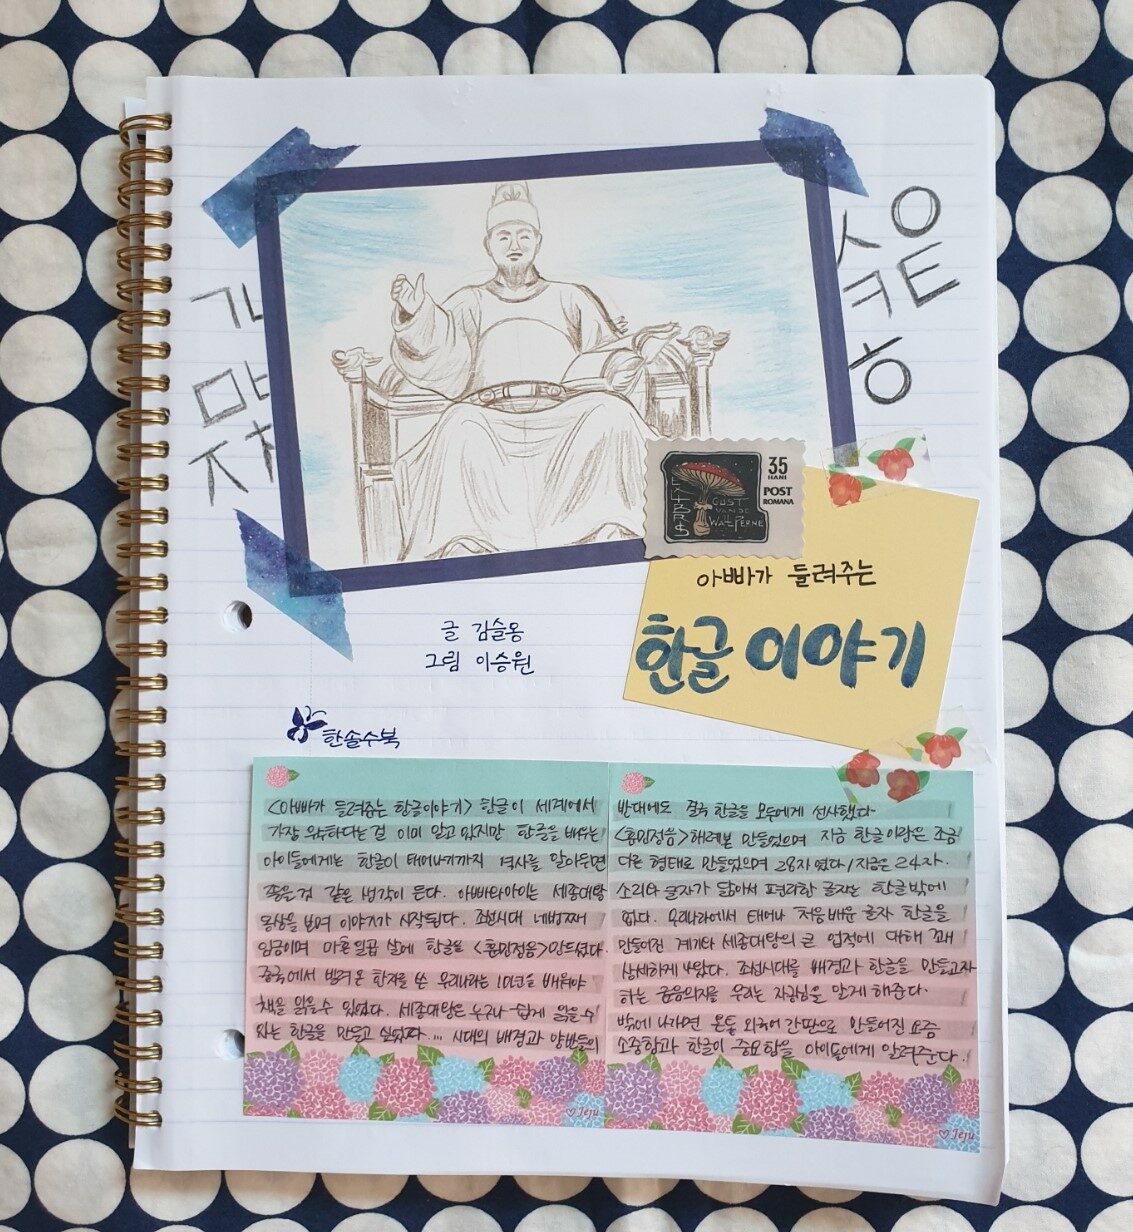 ㄱㄴ
ㅁㅂ
ㅈㅊ
ㅅㅇ
ㅋㅌ
ㅎ
35
HANI
POST
ROMANA
GUST
VAN DE
WALLE
PERNE
아빠가 들려주는
한글 이야기
글 김슬옹
그림 이승원
한솔수북
<아빠가 들려줍는 한글이야기> 한글이 세계에서
가장 우수하다는걸 이미 알고 있지만 한글을 배우는
아이들에게는 한글이 태어나기까지 역사를 알아두면
좋을것 같은 생각이 든다. 아빠와아이는 세종대왕
동상을 보며 이야기가 시작된다. 조선시대 네번째
임금이며 마흔일곱 살에 한글을 <훈민정음>만드셨다.
중국에서 빌려온 한자를 쓴 우리나라는 10년을 배워야
책을 읽을수 있었다. 세종대왕은 누구나 쉽게 읽을수
있는 한글을 만들고 싶었다... 시대의 배경과 양반들의
반대에도 결국 한글을 모두에게 선사했다.
<훈민정음>해례본 만들었으며 지금 한글이랑은 조금
다른 형태로 만들었으며 28자였다/지금은 24자.
소리와 글자가 닮아서 편리한 글자는 한글밖에
없다. 우리나라에서 태어나 처음배운 글자 한글을
만들어진 계기와 세종대왕의 큰 업적에 대해 꽤
상세하게 나왔다. 조선시대를 배경과 한글을 만들고자
하는 굳은의지를 우리는 자랑님을 알게 해준다.
밖에 나가면 온통 외국어 간판으로 만들어진 요즘
소중함과 한글이 중요함을 아이들에게 알려준다.
♡ Jeju
♡ Jeju